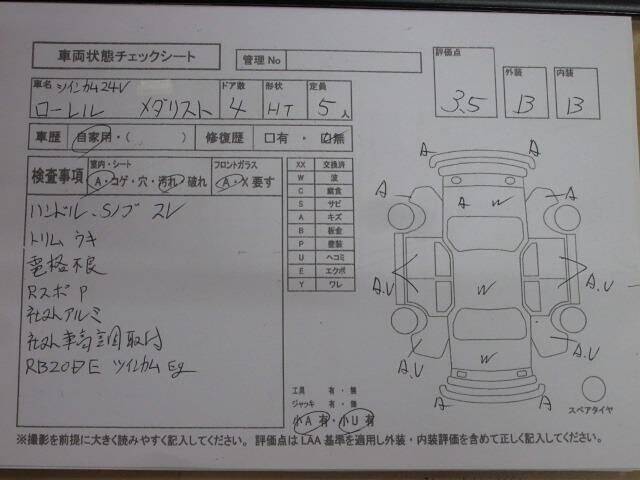 車両状態チェックシート 管理No
評価点 外装 内装
3.5 B B
車名 ツインカム24V ドア数 形状 定員
ローレル メダリスト 4 HT 5人
車歴 自家用・( ) 修復歴 □有 ☑無
検査事項 室内・シート フロントガラス
A・コゲ・穴・汚れ・破れ A・X要す
ハンドル、Sノブ スレ
トリム ウキ
電格不良
RスポP
社外アルミ
社外車高調取付
RB20DE ツインカム Eg
XX 交換済
W 波
C 腐食
S サビ
A キズ
B 板金
P 塗装
U ヘコミ
E エクボ
Y ワレ
A A
A A W A
A.U W A.U
A.U W A.U
A A
工具 有・無
ジャッキ 有・無
小A有・小U有
スペアタイヤ
※撮影を前提に大きく読みやすく記入してください。 評価点はLAA基準を適用し外装・内装評価を含めて正しく記入してください。